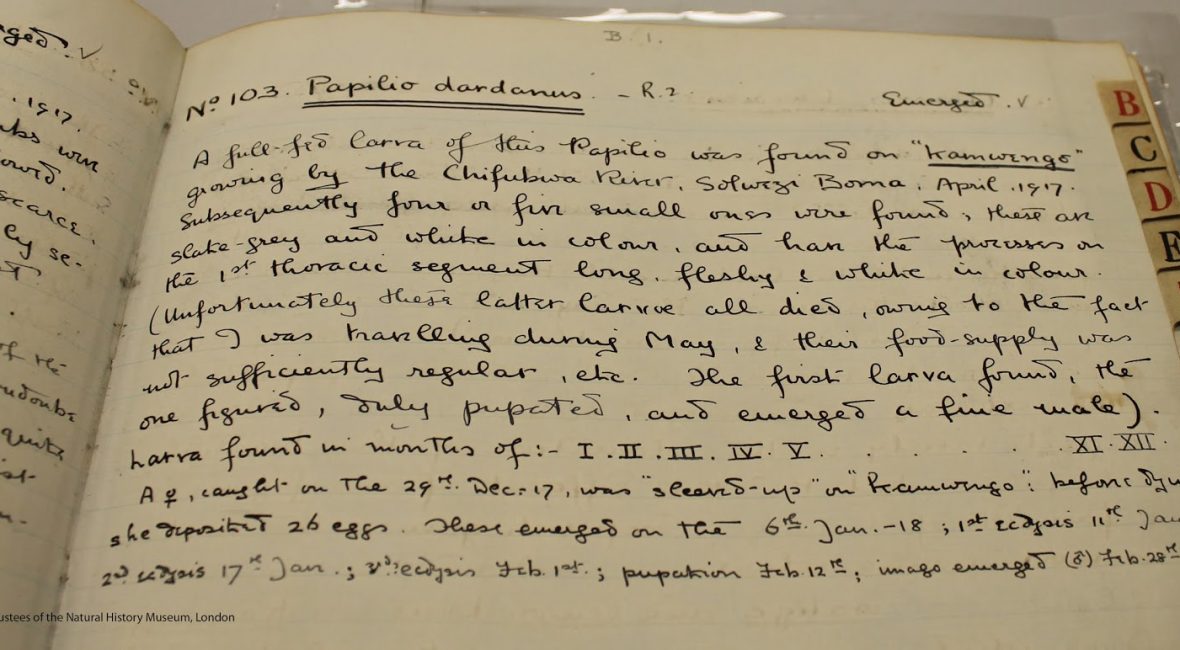 B. 1.
No 103. Papilio dardanus. - R. 2. Emerged. V
A full-fed larva of this Papilio was found on "Kamwengo"
growing by the Chifubwa River, Solwezi Boma, April. 1917.
Subsequently four or five small ones were found; these are
slate-grey and white in colour, and have the processes on
the 1st thoracic segment long, fleshy & white in colour.
(Unfortunately these latter larvae all died, owing to the fact
that I was travelling during May, & their food-supply was
not sufficiently regular, etc. The first larva found, the
one figured, duly pupated, and emerged a fine male).
Larva found in months of:- I. II. III. IV. V. . . . . . XI. XII.
A ♀, caught on the 29th. Dec.-17, was "sleeved-up" on "Kamwengo": before dyin
she deposited 26 eggs. These emerged on the 6th. Jan.-18; 1st ecdysis 11th Jan
2nd ecdysis 17th Jan.; 3rd: ecdysis Feb. 1st.; pupation Feb. 12th; imago emerged (♂) Feb. 28th
ged. V
. 1917.
owed.
scarce.
ly se-
of the
quite
B
C
D
E
ustees of the Natural History Museum, London